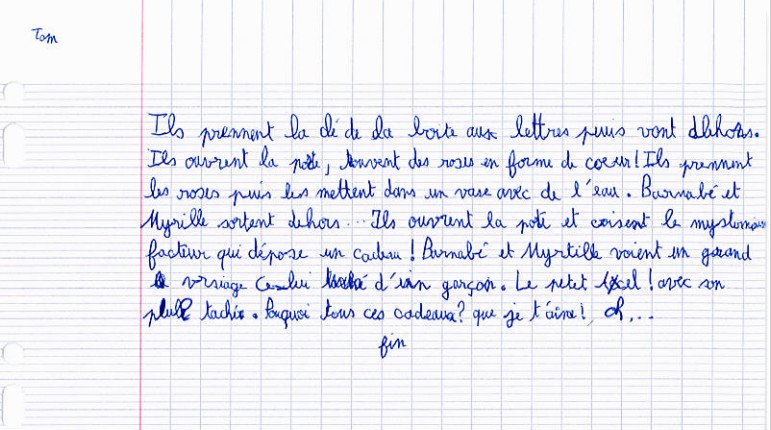 Tom
Ils prennent la clé de la boite aux lettres puis vont dehors.
Ils ouvrent la , trouvent des roses en forme de coeur! Ils prennent
les roses puis les mettent dans un vase avec de l'eau. Barnabé et
Myrille sortent dehors... Ils ouvrent la poti et
facteur qui dépose un cadeau! Barnabé et Myrtille voient un garand
visiage d'un garçon. Le petit Axel! avec son
tachée. Pouquoi tous ces cadeaux? que je t'aime! oh...
fin